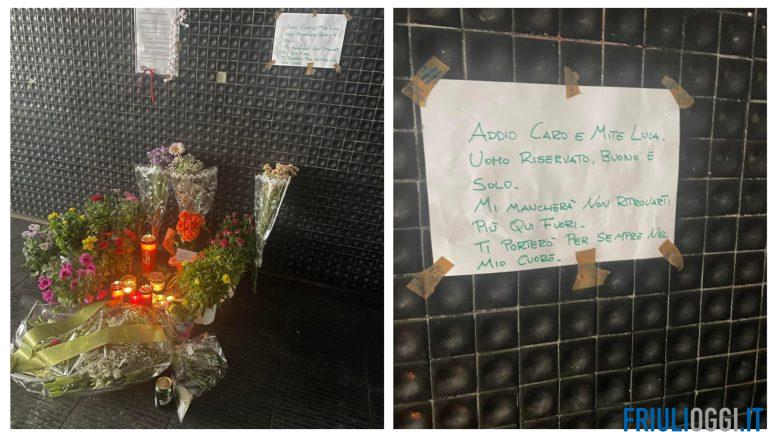 ADDIO CARO E MITE LUCA.
UOMO RISERVATO, BUONO E
SOLO.
MI MANCHERÀ NON RITROVARTI
PIÙ QUI FUORI.
TI PORTERÒ PER SEMPRE NEL
MIO CUORE.
FRIULIOGGI.IT